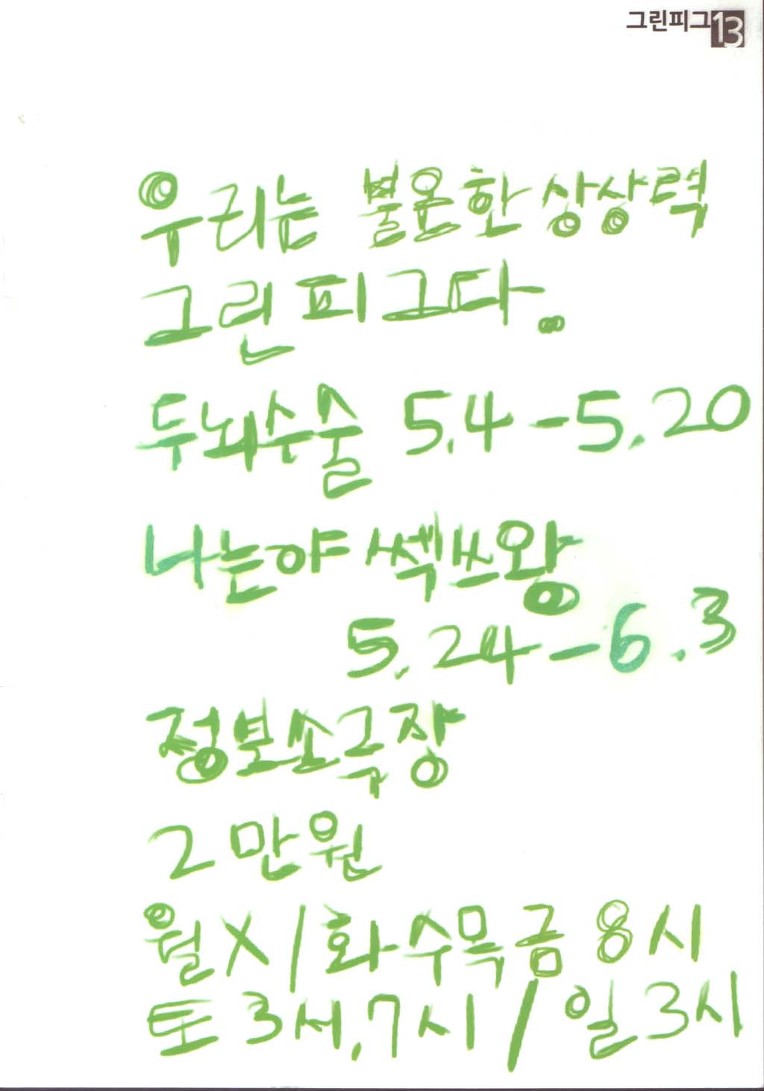 그린피그13
우리는 불온한 상상력
그린피그다.
두뇌수술 5.4-5.20
나는야 쎅쓰왕
5.24-6.3
정보소극장
2만원
월X/화수목금 8시
토 3시,7시/일 3시